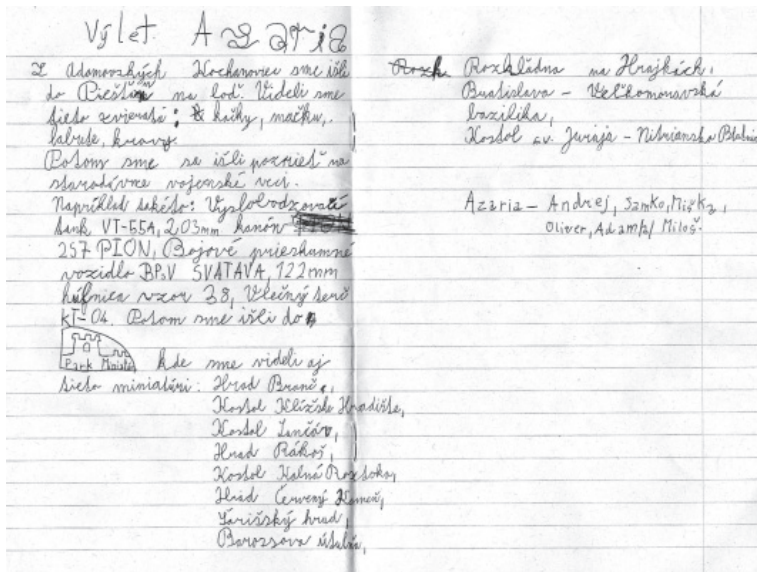 Výlet Azaria
Z Adamovských Kochanoviec sme išli
do Piešťan na loď. Videli sme
tieto zvieratá: kačky, mačku,
labute, kravy.
Potom sme sa išli pozrieť na
starodávne vojenské veci.
Napríklad takéto: Vyslobodzovací
tank VT-55A, 203mm kanón
257 PION, Bojové prieskumné
vozidlo BPsV SVATAVA, 122mm
húfnica vzor 38, Vlečný terč
KT-04. Potom sme išli do
Park Miniatúr
kde sme videli aj
tieto miniatúri: Hrad Branč,
Kostol Klížske Hradište,
Kostol
Hrad Rákoš,
Kostol Kalná Roztoka,
Hrad Červený Kameň,
Šarišský hrad,
útulňa,
Rozhľadna na Hrajkách,
Bratislava - Veľkomoravská
bazilika,
Kostol sv. Juraja - Nitrianska Blatnica
Azaria - Andrej, Samko, Miška,
Oliver, Adam, Miloš.